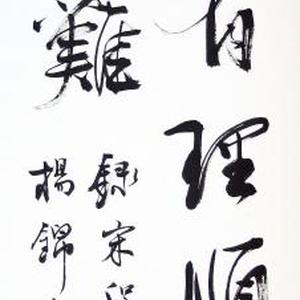 有理順
難
錄宋
楊錦